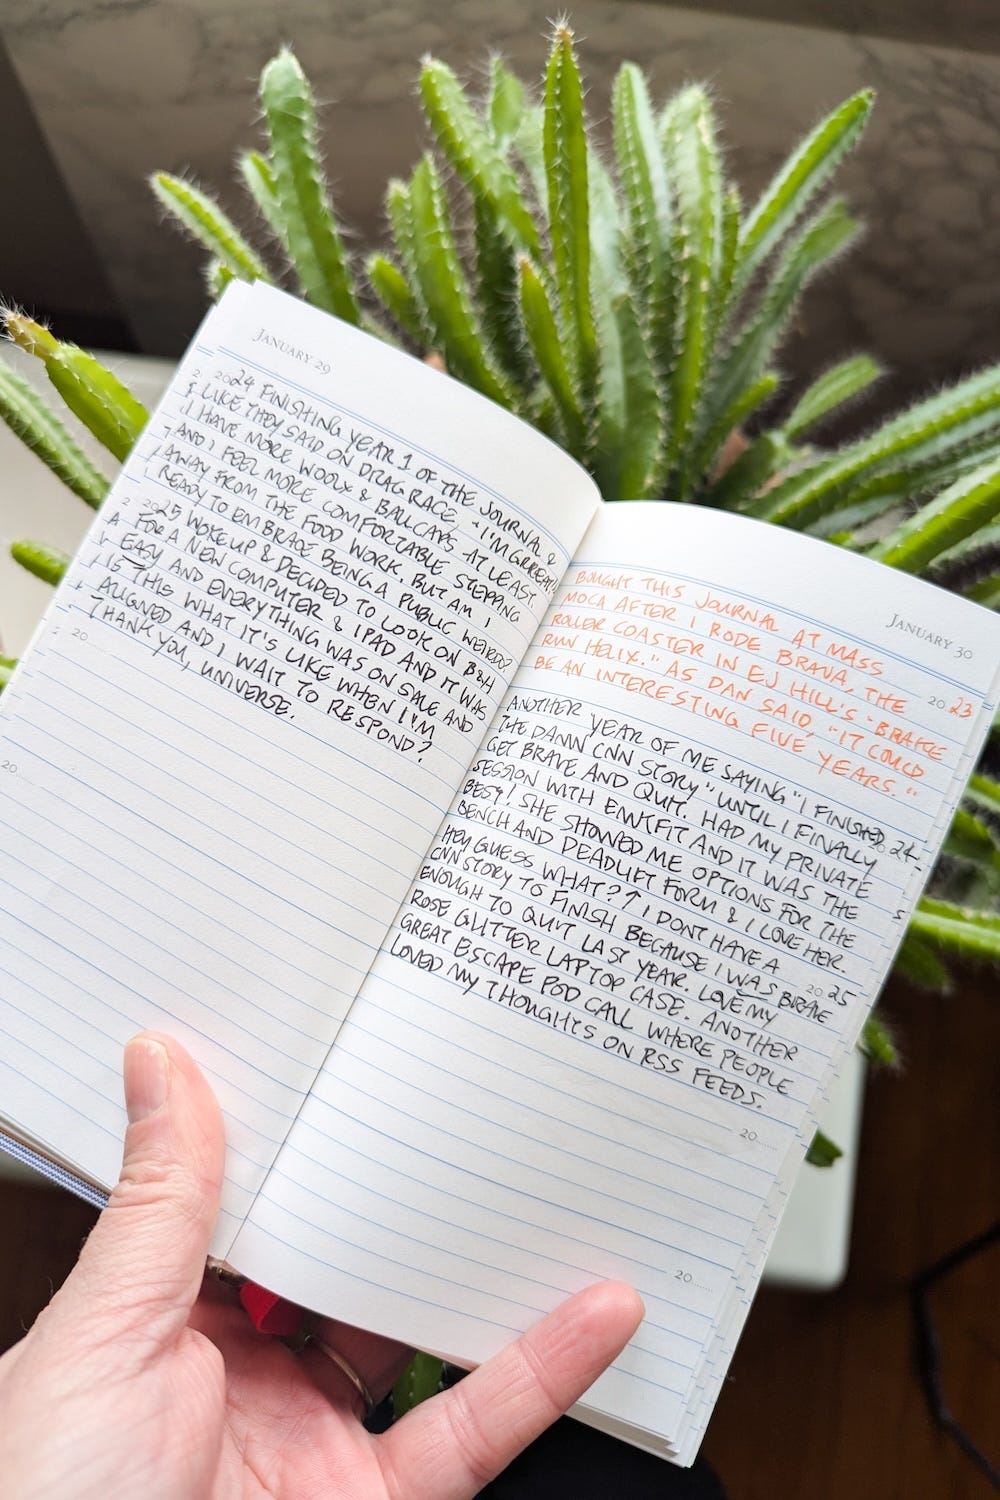 JANUARY 29
2024 FINISHING YEAR 1 OF THE JOURNAL &
LIKE THEY SAID ON DRAG RACE, "I'M GRREAT!"
I HAVE MORE WOOLX & BALLCAPS AT LEAST
AND I FEEL MORE COMFORTABLE STEPPING
AWAY FROM THE FOOD WORK. BUT AM I
READY TO EMBRACE BEING A PUBLIC WEIRDO?
2025 WOKE UP & DECIDED TO LOOK ON B&H
FOR A NEW COMPUTER & IPAD AND IT WAS
EASY AND EVERYTHING WAS ON SALE AND
IS THIS WHAT IT'S LIKE WHEN I'M
ALIGNED AND I WAIT TO RESPOND?
THANK YOU, UNIVERSE.
20
20
JANUARY 30
BOUGHT THIS JOURNAL AT MASS
MOCA AFTER I RODE BRAVA, THE 2023
ROLLER COASTER IN EJ HILL'S "BRAKE
RUN HELIX." AS DAN SAID, "IT COULD
BE AN INTERESTING FIVE YEARS."
ANOTHER YEAR OF ME SAYING "I FINISHED 24
THE DAMN CNN STORY" UNTIL I FINALLY
GET BRAVE AND QUIT. HAD MY PRIVATE
SESSION WITH EWKFIT AND IT WAS THE
BEST! SHE SHOWED ME OPTIONS FOR THE
BENCH AND DEADLIFT FORM & I LOVE HER.
HEY GUESS WHAT? ↑ I DONT HAVE A 2025
CNN STORY TO FINISH BECAUSE I WAS BRAVE
ENOUGH TO QUIT LAST YEAR. LOVE MY
ROSE GLITTER LAPTOP CASE. ANOTHER
GREAT ESCAPE POD CALL WHERE PEOPLE
LOVED MY THOUGHTS ON RSS FEEDS.
20
20